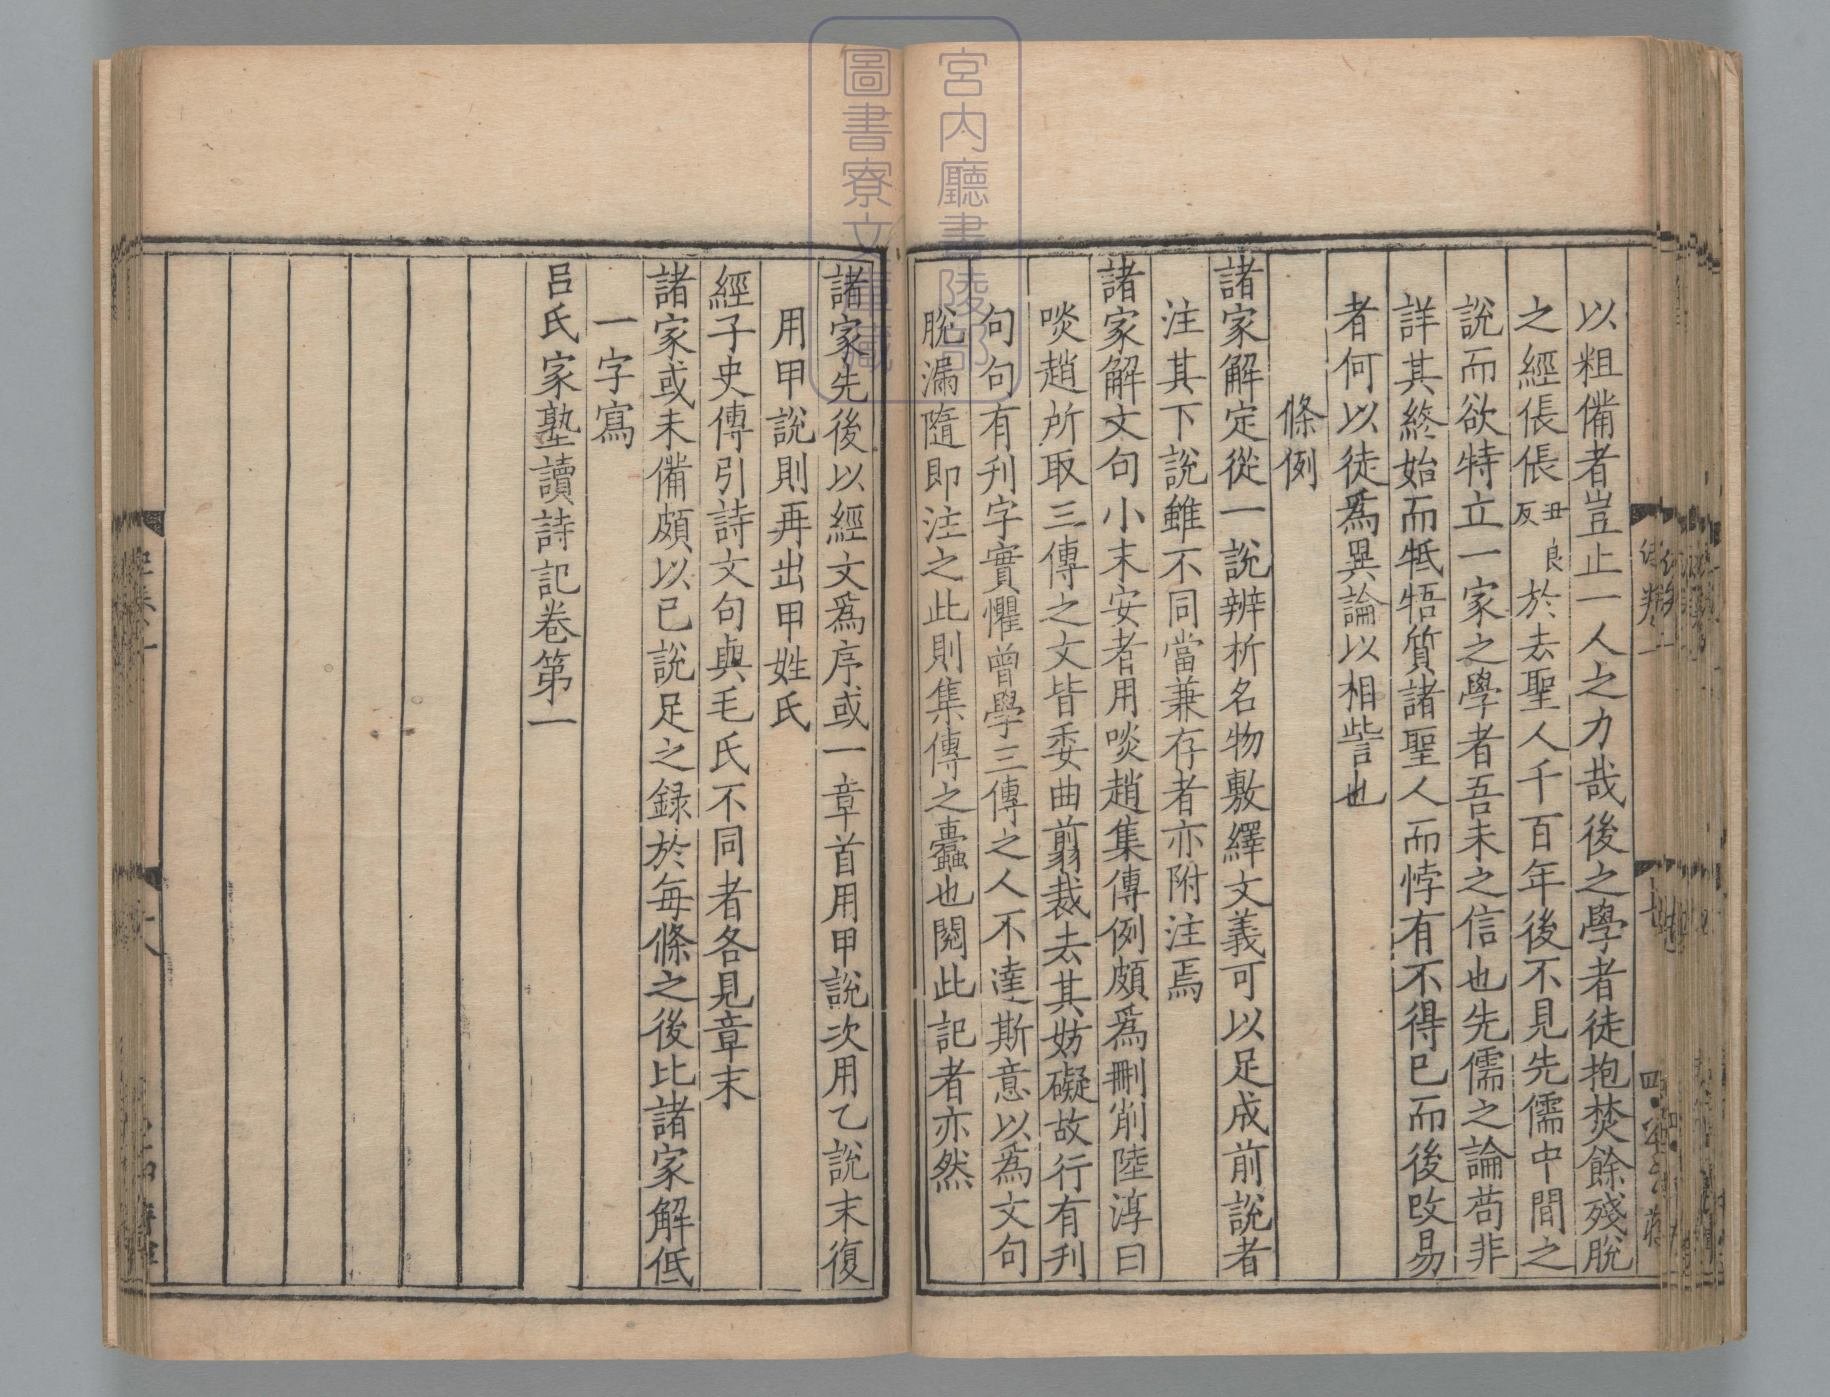 以粗備者豈止一人之力哉後之學者徒抱焚餘殘脫
之經倀倀丑良反於去聖人千百年後不見先儒中間之
說而欲特立一家之學者吾未之信也先儒之論苟非
詳其終始而牴牾質諸聖人而悖有不得已而後攺易
者何以徒爲異論以相訾也
條例
諸家解定從一說辨析名物敷繹文義可以足成前說者
注其下說雖不同當兼存者亦附注焉
諸家解文句小未安者用啖趙集傳例頗爲刪削陸淳曰
啖趙所取三傳之文皆委曲翦裁去其妨礙故行有刋
句句有刋字實懼曾學三傳之人不達斯意以爲文句
脫漏隨即注之此則集傳之蠹也閱此記者亦然
諸家先後以經文爲序或一章首用甲說次用乙說末復
用甲說則再出甲姓氏
經子史傳引詩文句與毛氏不同者各見章末
諸家或未備頗以已說足之録於每條之後比諸家解低
一字寫
吕氏家塾讀詩記卷第一
宮内廳書陵部
圖書寮文庫藏